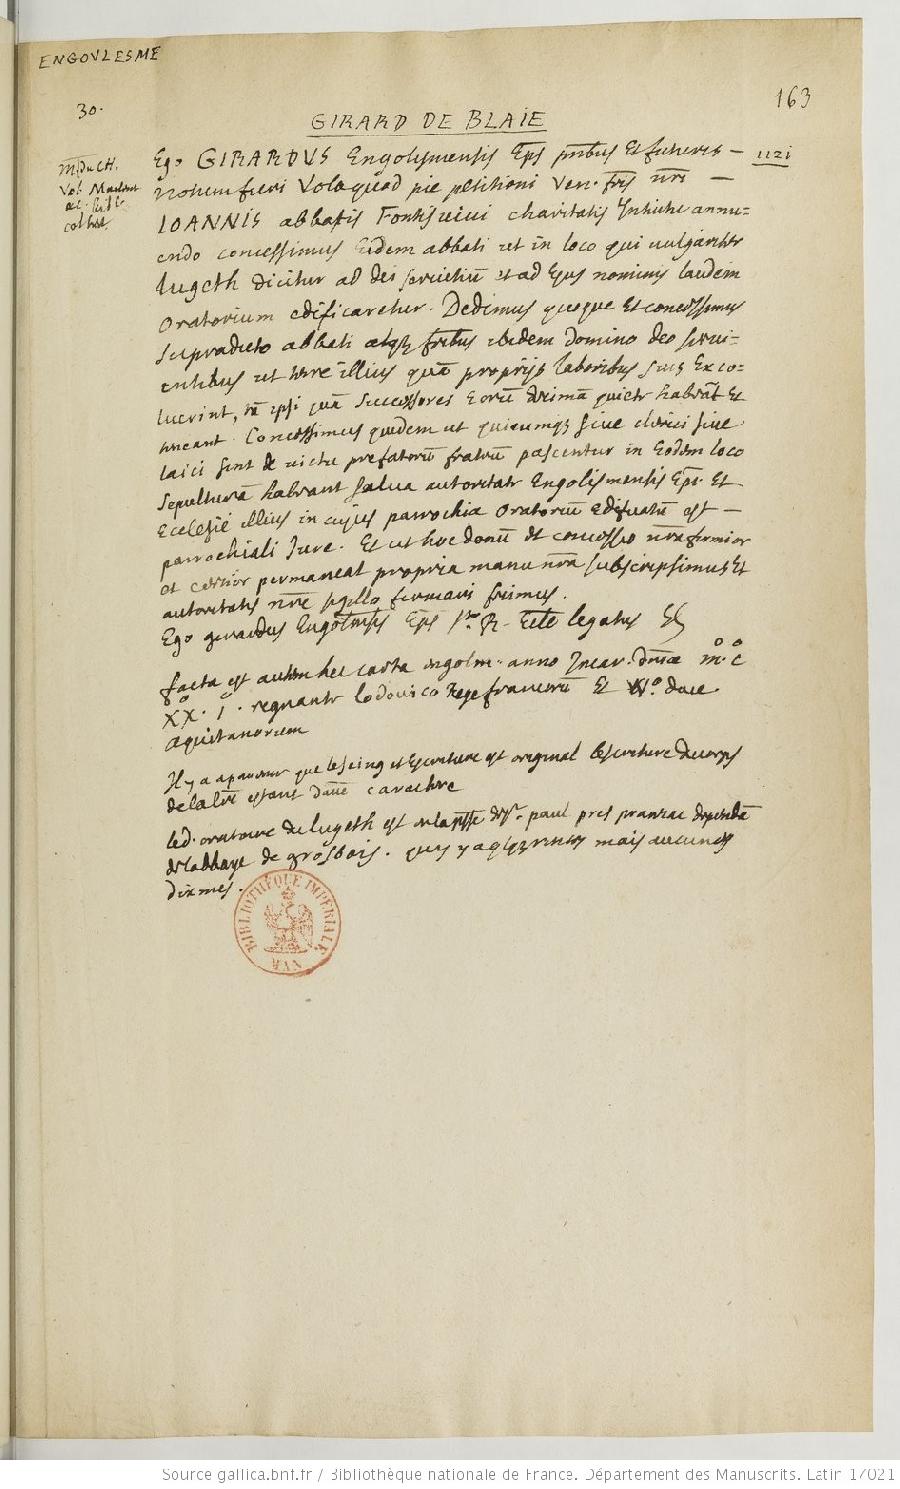 ENGOVLESME
163
30.
GIRARD DE BLAIE
M. DuCH.
Vol.
Ego GIRARDVS Engolismensis Eps pntibus Et futuris —
1121
notum fieri Volo quod pie petitioni Ven. fris nri —
IOANNIS abbatis Fontisuiui charitatis Intuitu annu=
endo concessimus Eidem abbati ut in loco qui uulgariter
lugeth dicitur ad dei seruitiū et ad Ejus nominis laudem
oratorium edificaretur. Dedimus quoque Et concessimus
supradicto abbati atqz fribus ibidem domino deo serui=
entibus ut terre illius quā proprijs laboribus suis Exco=
luerint, tā ipsi quā Successores Eorū decimā quiete habeāt Et
teneant. Concessimus quidem ut quicumqz siue clerici siue
laici sint de uictu prefatorū fratrū pascentur in Eodem loco
sepulturā habeant salua autoritate Engolismensis Epi. Et
Ecclesie illius in cujus parrochia oratoriū edificatū est —
parrochiali Jure. Et ut hoc donū et concessio nra firmior
et certior permaneat propria manu nra subscripsimus Et
autoritatis nre sigillo firmari fecimus.
Ego girardus Engolmsis Eps Ste. R. Ecte legatus SS
facta est autem hec carta engolm. anno Incar. dnice m. c
XX. I. regnante lodouico Rege francorū Et W.o duce
aquitanorum
Il y a apparence que le seing et Escriture est original lescriture du corps
de la lre estant dautre caractere
led. oratoire de lugeth est en la psse de St. paul pres dependā
de labbaye de grosbois. mais aucunes
dixmes.
BIBLIOTHÈQUE IMPÉRIALE
MAN
Source gallica.bnf.fr / Bibliothèque nationale de France. Département des Manuscrits. Latin 17021